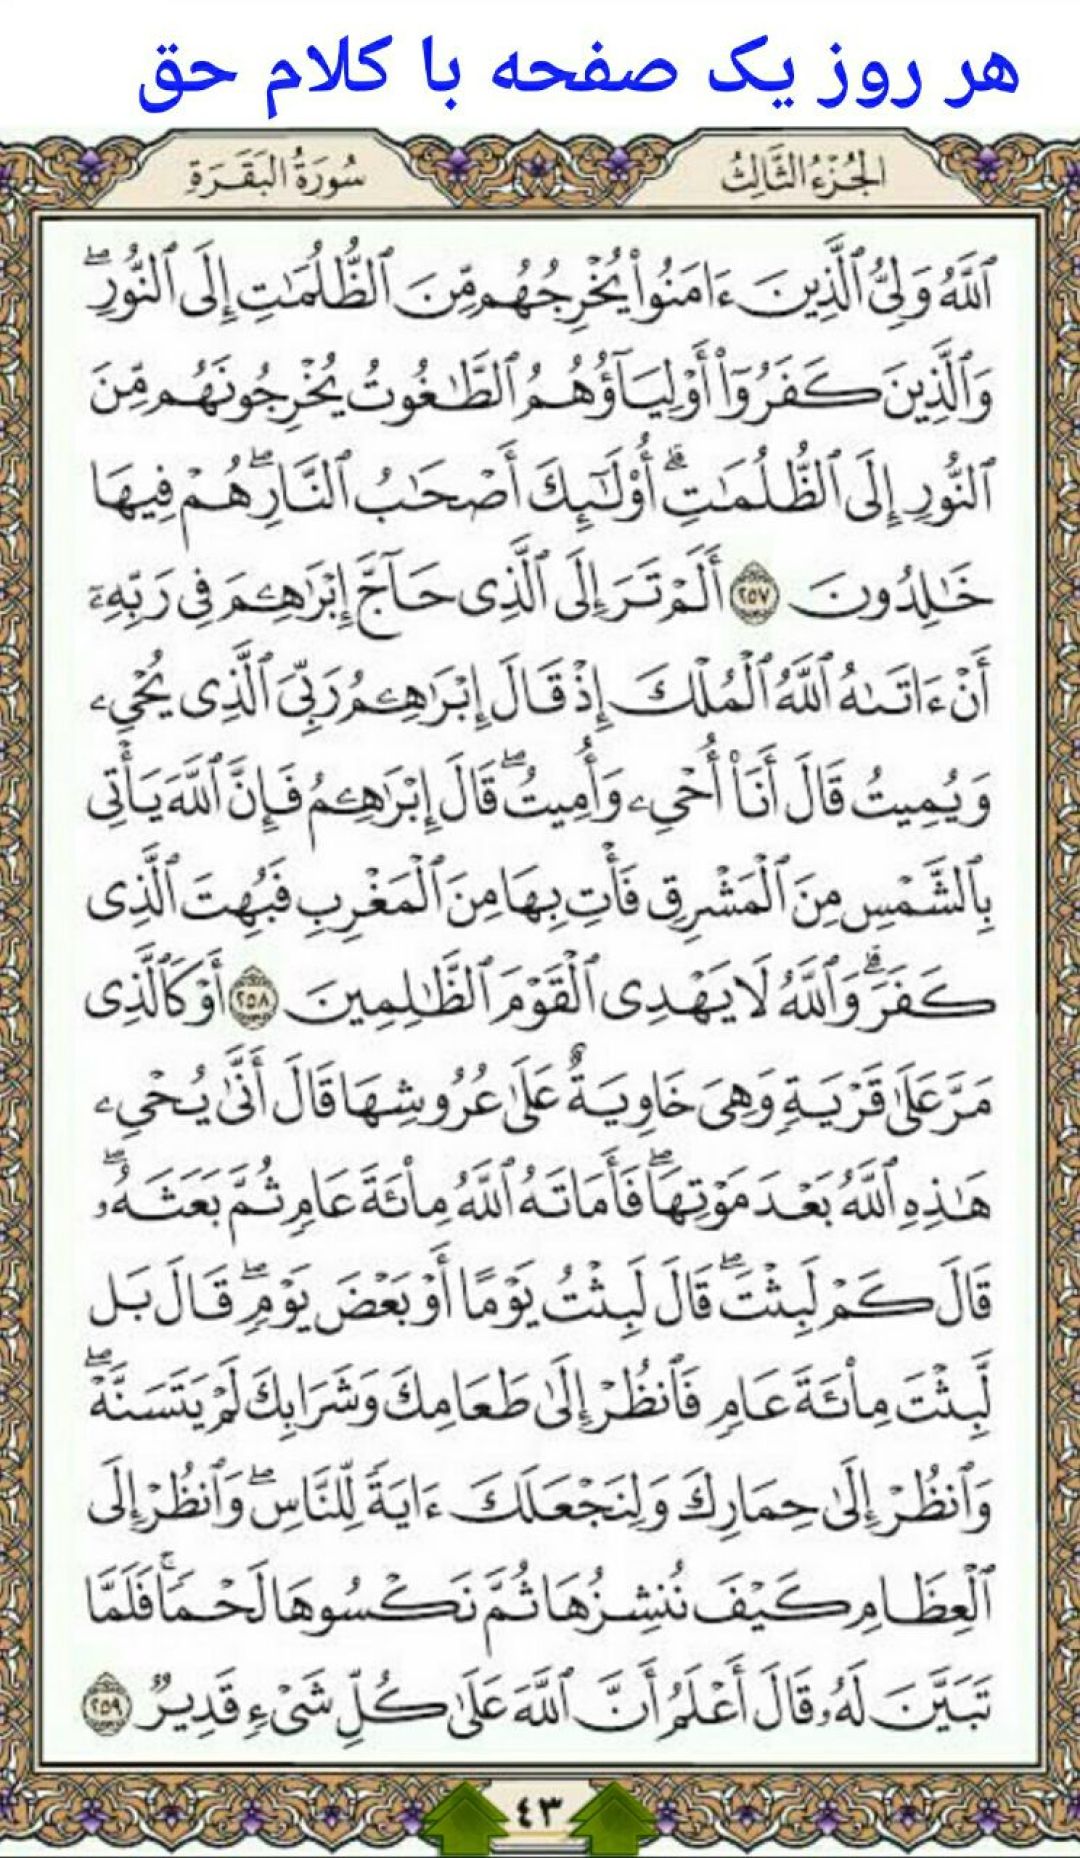 هر روز یک صفحه با کلام حق
الجُزْءُ الثَّالِثُ
سُورَةُ البَقَرَةِ
ٱللَّهُ وَلِىُّ ٱلَّذِينَ ءَامَنُوا۟ يُخْرِجُهُم مِّنَ ٱلظُّلُمَـٰتِ إِلَى ٱلنُّورِ ۖ
وَٱلَّذِينَ كَفَرُوٓا۟ أَوْلِيَآؤُهُمُ ٱلطَّـٰغُوتُ يُخْرِجُونَهُم مِّنَ
ٱلنُّورِ إِلَى ٱلظُّلُمَـٰتِ ۗ أُو۟لَـٰٓئِكَ أَصْحَـٰبُ ٱلنَّارِ ۖ هُمْ فِيهَا
خَـٰلِدُونَ ٢٥٧ أَلَمْ تَرَ إِلَى ٱلَّذِى حَآجَّ إِبْرَٰهِـۧمَ فِى رَبِّهِۦٓ
أَنْ ءَاتَىٰهُ ٱللَّهُ ٱلْمُلْكَ إِذْ قَالَ إِبْرَٰهِـۧمُ رَبِّىَ ٱلَّذِى يُحْىِۦ
وَيُمِيتُ قَالَ أَنَا۠ أُحْىِۦ وَأُمِيتُ ۖ قَالَ إِبْرَٰهِـۧمُ فَإِنَّ ٱللَّهَ يَأْتِى
بِٱلشَّمْسِ مِنَ ٱلْمَشْرِقِ فَأْتِ بِهَا مِنَ ٱلْمَغْرِبِ فَبُهِتَ ٱلَّذِى
كَفَرَ ۗ وَٱللَّهُ لَا يَهْدِى ٱلْقَوْمَ ٱلظَّـٰلِمِينَ ٢٥٨ أَوْ كَٱلَّذِى
مَرَّ عَلَىٰ قَرْيَةٍ وَهِىَ خَاوِيَةٌ عَلَىٰ عُرُوشِهَا قَالَ أَنَّىٰ يُحْىِۦ
هَـٰذِهِ ٱللَّهُ بَعْدَ مَوْتِهَا ۖ فَأَمَاتَهُ ٱللَّهُ مِا۟ئَةَ عَامٍ ثُمَّ بَعَثَهُۥ ۖ
قَالَ كَمْ لَبِثْتَ ۖ قَالَ لَبِثْتُ يَوْمًا أَوْ بَعْضَ يَوْمٍ ۖ قَالَ بَل
لَّبِثْتَ مِا۟ئَةَ عَامٍ فَٱنظُرْ إِلَىٰ طَعَامِكَ وَشَرَابِكَ لَمْ يَتَسَنَّهْ ۖ
وَٱنظُرْ إِلَىٰ حِمَارِكَ وَلِنَجْعَلَكَ ءَايَةً لِّلنَّاسِ ۖ وَٱنظُرْ إِلَى
ٱلْعِظَامِ كَيْفَ نُنشِزُهَا ثُمَّ نَكْسُوهَا لَحْمًا ۚ فَلَمَّا
تَبَيَّنَ لَهُۥ قَالَ أَعْلَمُ أَنَّ ٱللَّهَ عَلَىٰ كُلِّ شَىْءٍ قَدِيرٌ ٢٥٩
٤٣